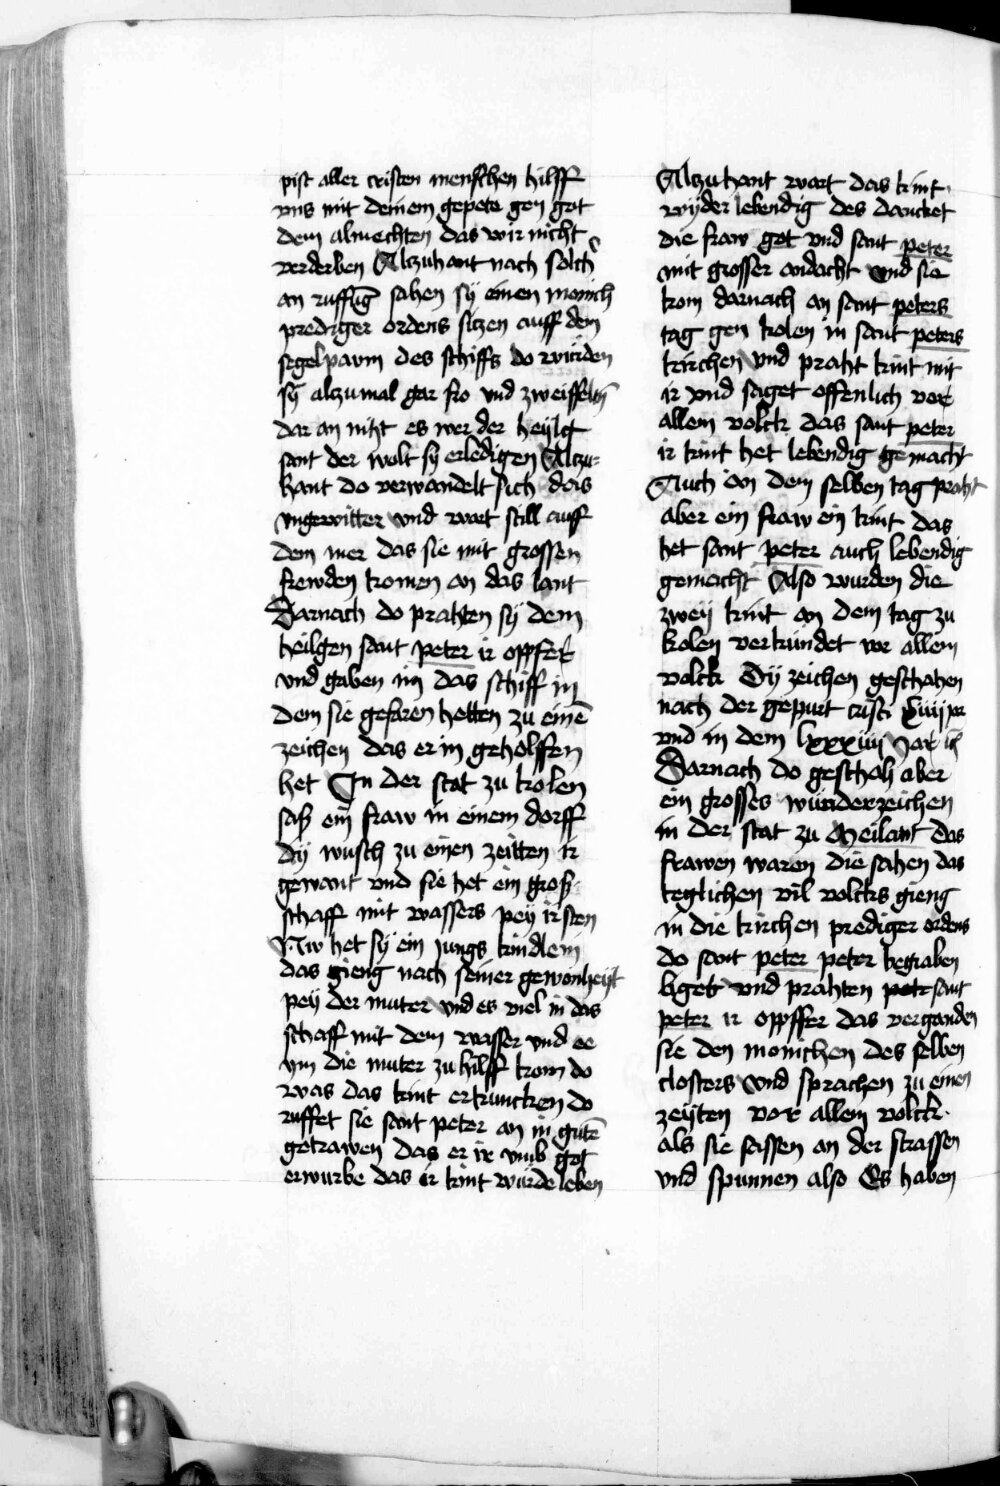 pist aller cristen menschen hilff
vns mit deinem gepete gen got
dem almechten das wir nicht
verderben Alzuhant nach solch̃
an ruffũg sahen sÿ einen monich
prediger ordens sitzen auff dem
segelpawm des schiffs do wurden
sÿ alzumal gar fro vnd zweiffeltñ
dar an niht es wer der heylig
sant der wolt sy erledigen Alczu-
hant do verwandelt sich das
vngewitter vnd wart still auff
dem mer das sie mit grossen
frewden komen an das lant
Darnach do prahten sÿ dem
heilgen sant peter ir opffer
vnd gaben im das schiff in
dem sie gefaren hetten zu einẽ
zeichen das er in geholffen
het In der stat zu kolen
saß ein fraw in einem dorff
dÿ wusch zu einen zeitten ir
gewant vnd sie het ein groß
schaff mit wassers pey ir sten
Nw het sÿ ein jungs kindlein
das gieng nach seiner gewonheyt
pey der muter vnd es viel in das
schaff mit dem wasser vnd ee
ym die muter zu hilff kom do
was das kint ertruncken do
ruffet sie sant peter an in gutẽ
getrawen das er ir vmb got
erwurbe das ir kint wurde leben
Alczuhant wart das kint
wyder lebendig des dancket
die fraw got vnd sant peter
mit grosser andacht vnd sie
kom darnach an sant peters
tag gen kolen in sant peters
kirchen vnd praht kint mit
ir vnd saget offenlich vor
allem volck das sant peter
ir kint het lebendig gemacht
Auch an dem selben tag praht
aber ein fraw ein kint das
het sant peter auch lebendig
gemacht Also wurden die
zweÿ kint an dem tag zu
kolen verkundet vor allem
volck Dÿ zeichen geschahen
nach der gepurt cristi
vnd in dem lxxxiiij Jar
Darnach do geschah aber
ein grosses wunderzeichen
in der stat zu Meilant das
frawen waren die sahen das
teglichen vil volcks gieng
in die kirchen prediger ordens
do sant peter peter begraben
liget vnd prahten sant
peter ir oppffer das vergunden
sie den monichen des selben
closters vnd sprachen zu einen
zeyten vor allem volck
als sie sassen an der strassen
vnd spunnen also Es haben